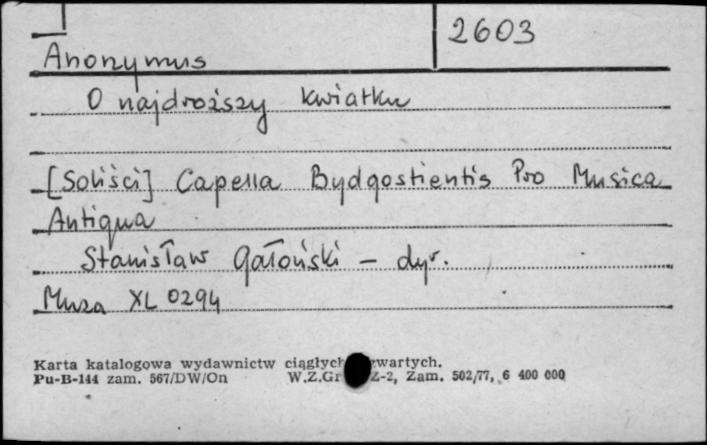 2603
Anonymus
O najdroższy kwiatku
[Soliści] Capella Bydgostientis Pro Musica
Antiqua
Stanisław Gałoński - dyr.
Muza XL 0294
Karta katalogowa wydawnictw ciągłych zwartych.
Pu-B-144 zam. 567/DW/On W.Z.Gr Z-2, Zam. 502/77, 6 400 000